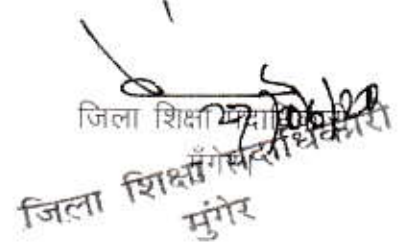 27/06/20
जिला शिक्षा पदाधिकारी
मुँगेर
जिला शिक्षा पदाधिकारी
मुंगेर